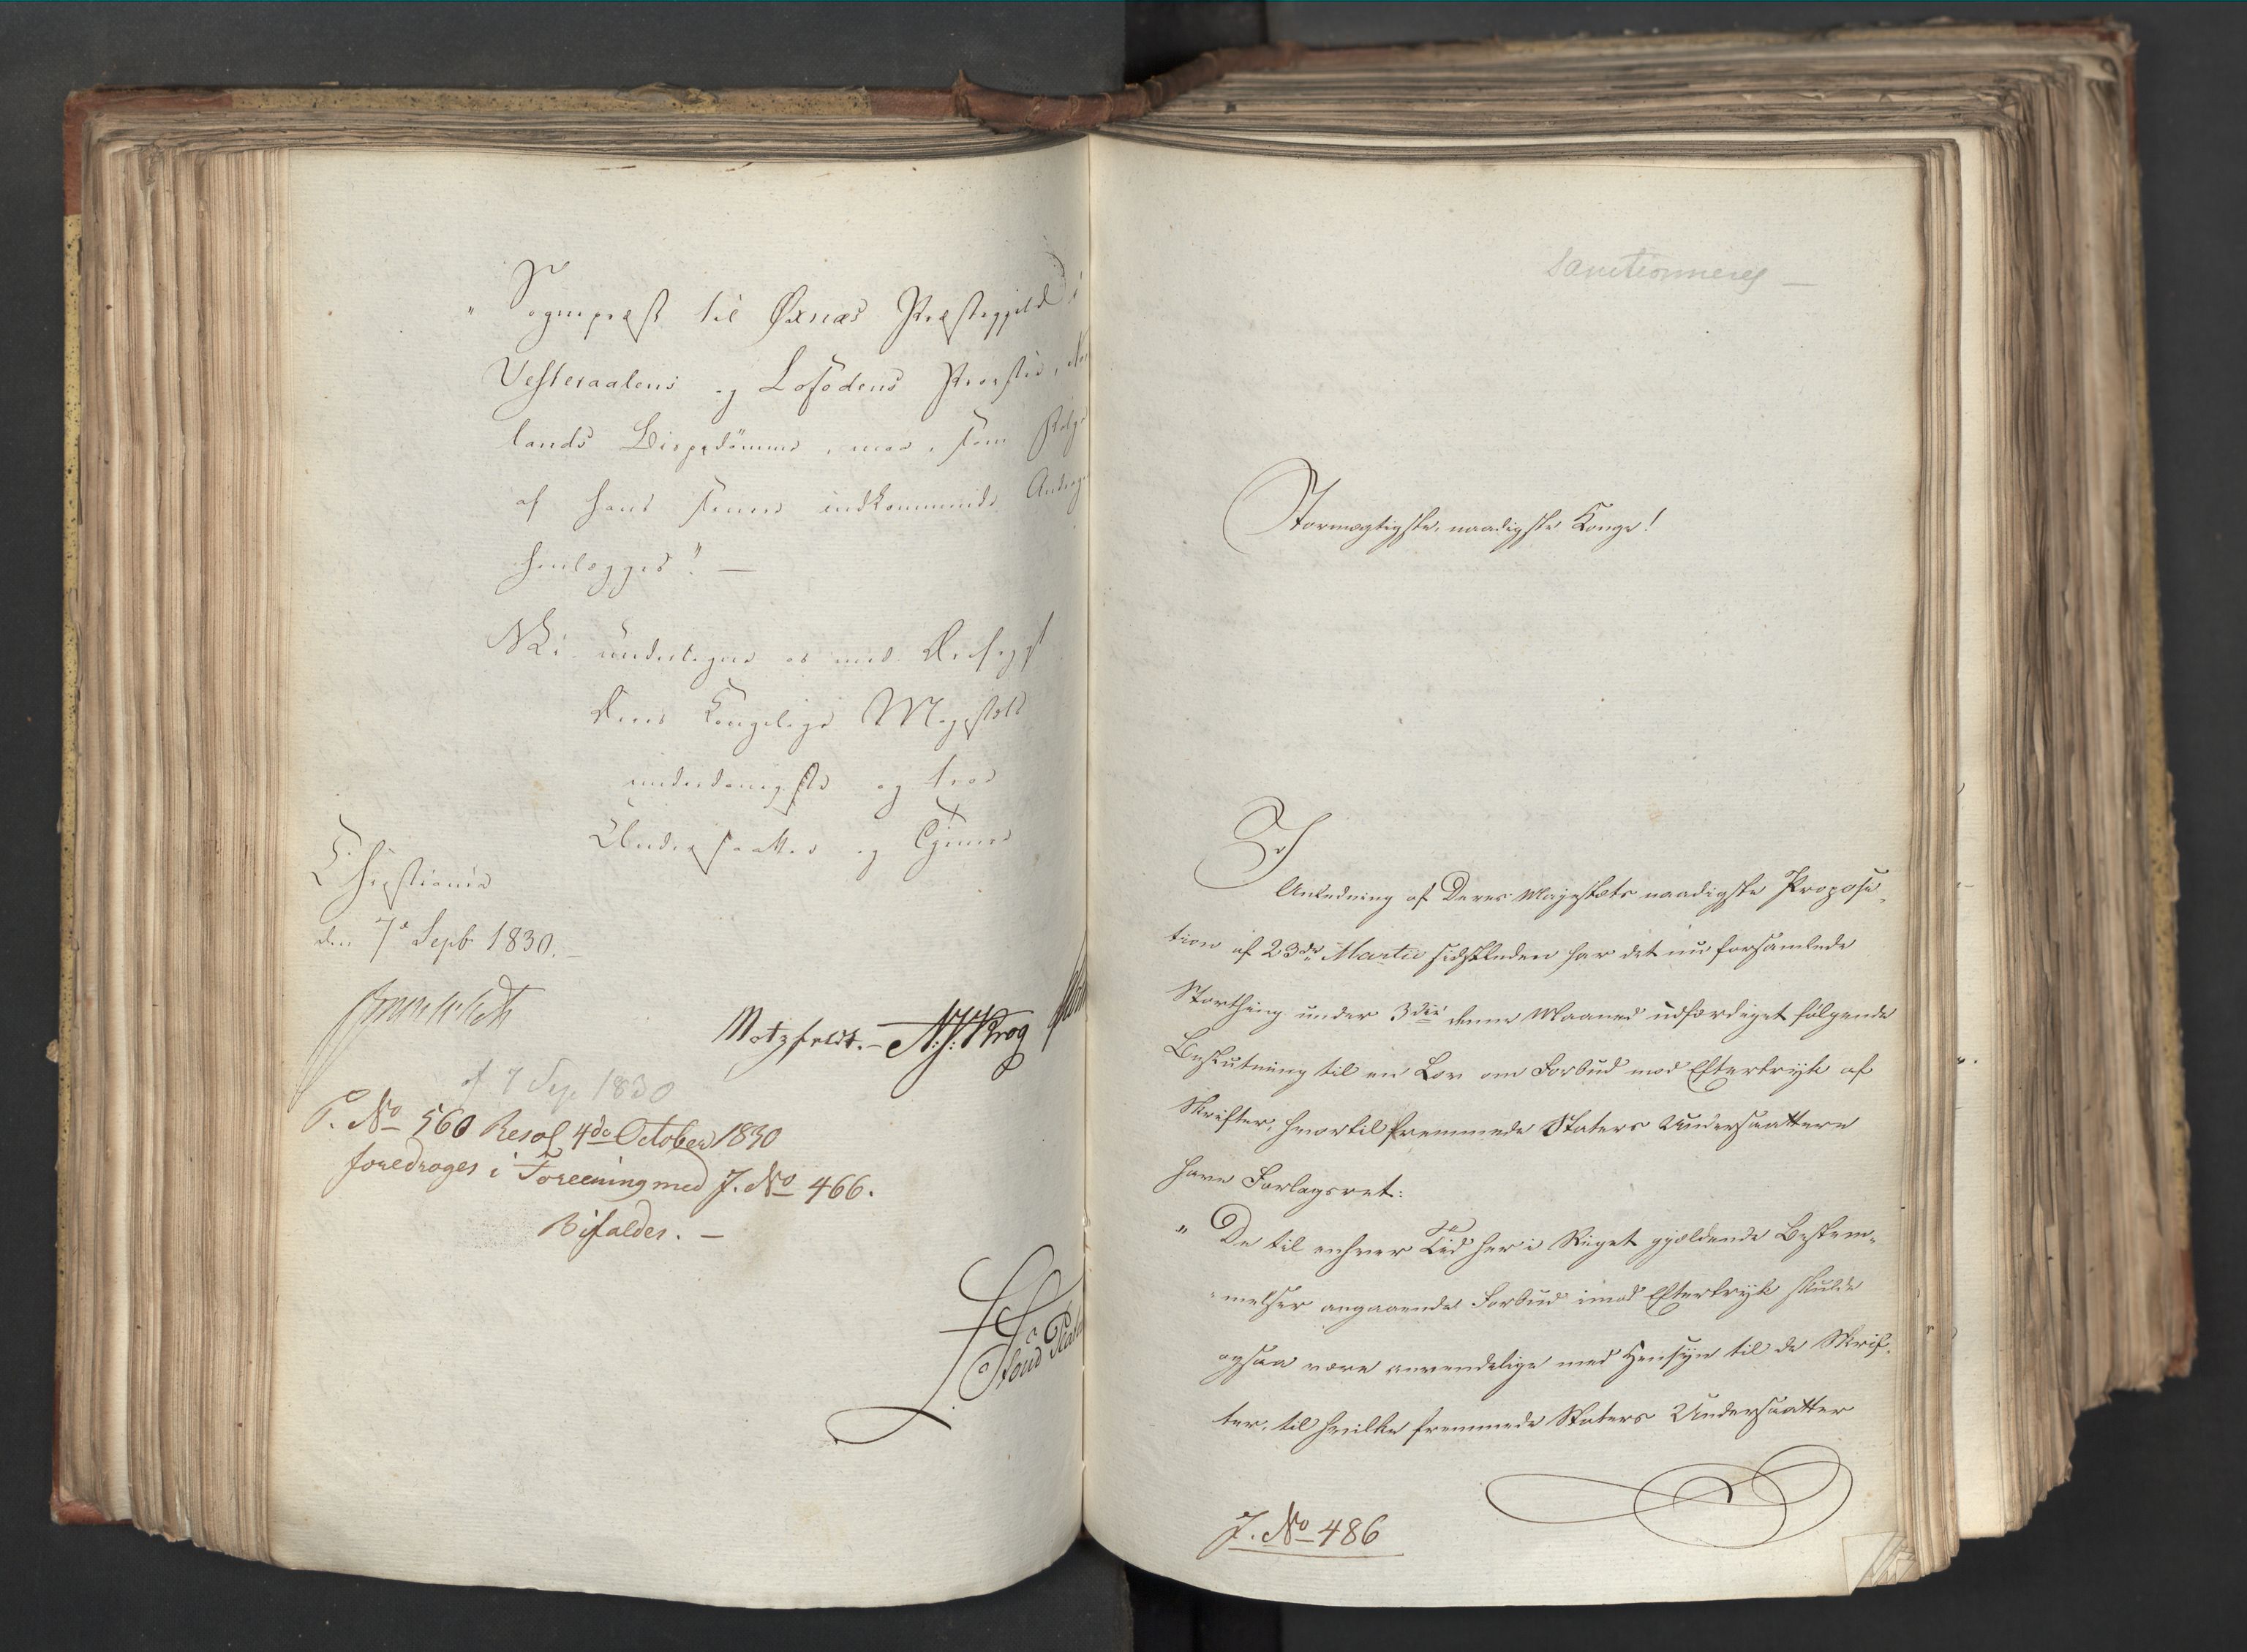 "Sognepræst til Øxnæs Præstegjeld i
Vesteraalens og Lofodens Provstie, 
lands Bispedømme, maa, som Følge
af hans senere indkommende
henlægges". —
Vi undertegne os med Dybeste
Deres Kongelige Majestæts
underdanigste og troe
Undersaatter og Tjenere
Christiania
den 7e Septb 1830. —
Motzfeldt. — N: J: Krog
af 7 Sep 1830
P. No 560 Resol 4de October 1830
foredroges i Foreening med J. No 466.
Bifaldes. —
Sanctionneres —
Stormægtigste, naadigste Konge!
I
Anledning af Deres Majestæts naadigste Proposi-
tion af 23de Martii sidstleden har det nu forsamlede
Storthing under 3die denne Maaned udfærdiget følgende
Beslutning til en Lov om Forbud mod Eftertryk af
Skrifter, hvortil fremmede Staters Undersaattere
have Forlagsret:
"De til enhver Tid her i Riget gjældende Bestem-
"melser angaaende Forbud imod Eftertryk skulde
ogsaa være anvendelige med Hensyn til de Skrif-
ter, til hvilke fremmede Staters Undersaatter
J. No 486